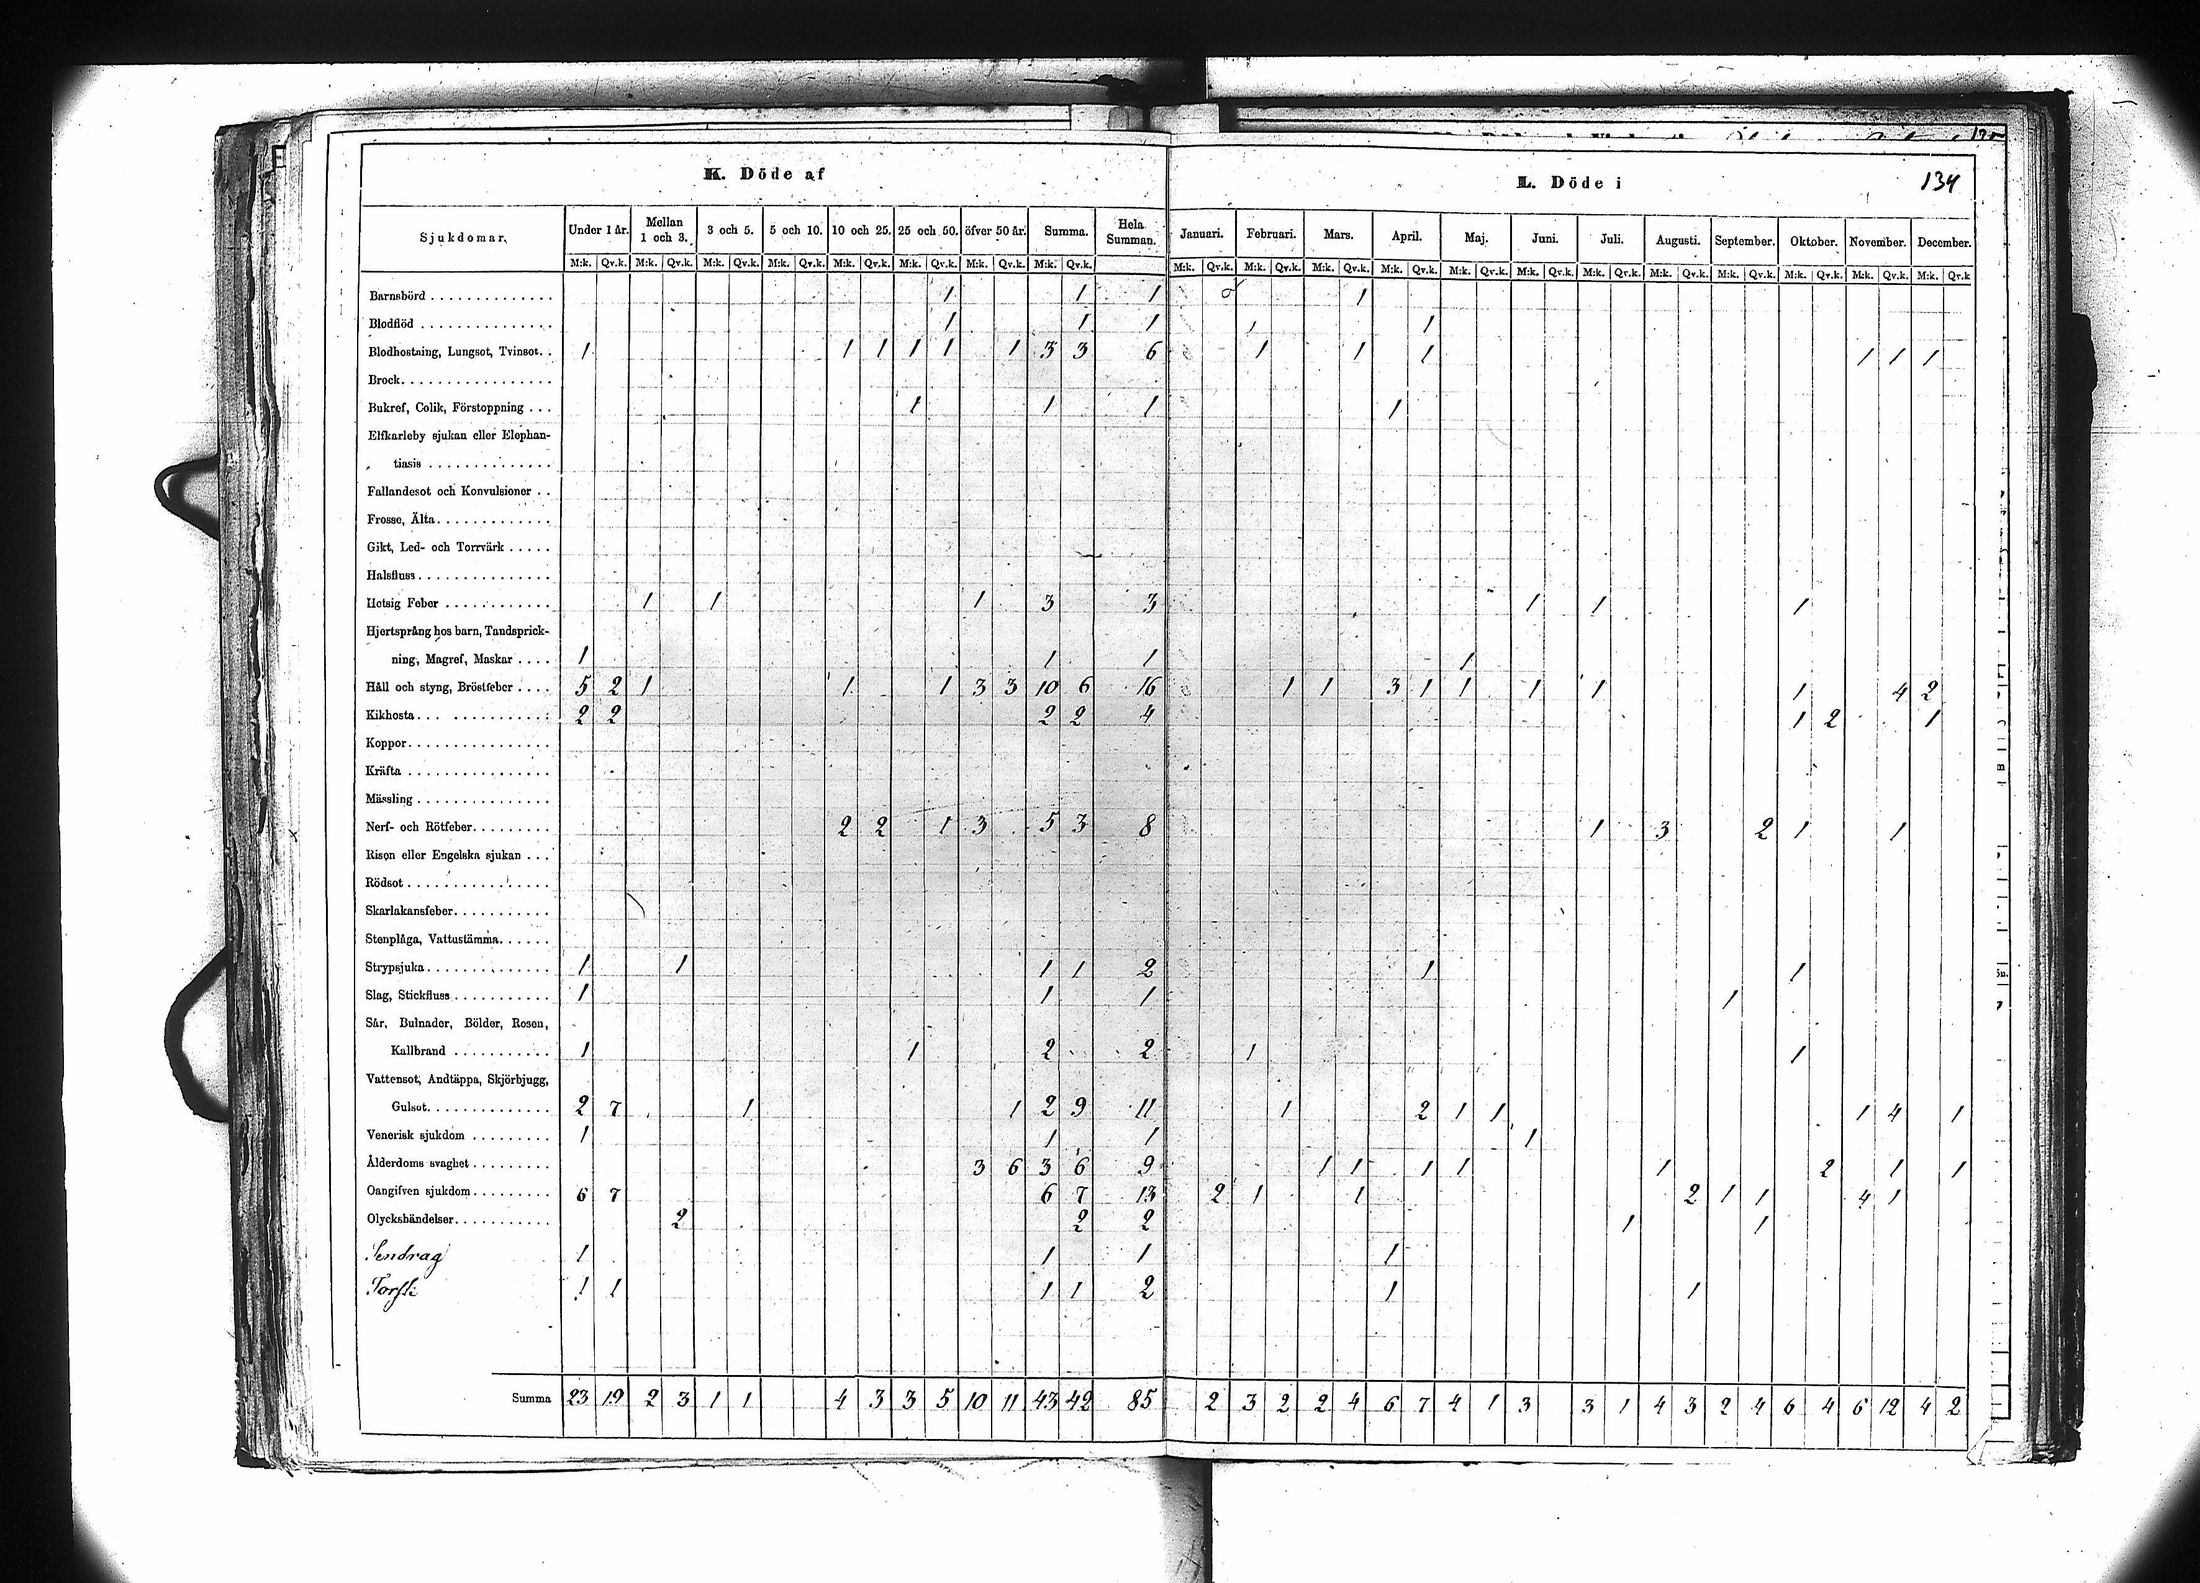 K. Döde af
L. Döde i
134
Sjukdomar. Under 1 år. Mellan 1 och 3. 3 och 5. 5 och 10. 10 och 25. 25 och 50. öfver 50 år. Summa. Hela Summan. Januari. Februari. Mars. April. Maj. Juni. Juli. Augusti. September. Oktober. November. December.
M:k. Qv.k. M:k. Qv.k. M:k. Qv.k. M:k. Qv.k. M:k. Qv.k. M:k. Qv.k. M:k. Qv.k. M:k. Qv.k. M:k. Qv.k. M:k. Qv.k. M:k. Qv.k. M:k. Qv.k. M:k. Qv.k. M:k. Qv.k. M:k. Qv.k. M:k. Qv.k. M:k. Qv.k. M:k. Qv.k. M:k. Qv.k. M:k. Qv.k
Barnsbörd 1 1 1 1
Blodflöd 1 1 1 1
Blodhostning, Lungsot, Tvinsot. 1 1 1 1 1 1 3 3 6 1 1 1 1 1 1
Brock
Bukref, Colik, Förstoppning 1 1 1 1
Elfkarleby sjukan eller Elephan-
tiasis
Fallandesot och Konvulsioner
Frosse, Älta
Gikt, Led- och Torrvärk
Halsfluss
Hetsig Feber 1 1 1 3 3 1 1 1
Hjertsprång hos barn, Tandsprick-
ning, Magref, Maskar 1 1 1 1
Håll och styng, Bröstfeber 5 2 1 1 1 3 3 10 6 16 1 1 3 1 1 1 1 1 4 2
Kikhosta 2 2 2 2 4 1 2 1
Koppor
Kräfta
Mässling
Nerf- och Rötfeber 2 2 1 3 5 3 8 1 3 2 1 1
Risen eller Engelska sjukan
Rödsot
Skarlakansfeber
Stenplåga, Vattustämma
Strypsjuka 1 1 1 1 2 1 1
Slag, Stickfluss 1 1 1 1
Sår, Bulnader, Bölder, Rosen,
Kallbrand 1 1 2 2 1 1
Vattensot, Andtäppa, Skjörbjugg,
Gulsot 2 7 1 1 2 9 11 1 2 1 1 1 4 1
Venerisk sjukdom 1 1 1 1
Ålderdoms svaghet 3 6 3 6 9 1 1 1 1 1 2 1 1
Oangifven sjukdom 6 7 6 7 13 2 1 1 2 1 1 4 1
Olyckshändelser 2 2 2 1 1
Sendrag 1 1 1 1
Torsk 1 1 1 1 2 1 1
Summa 23 19 2 3 1 1 4 3 3 5 10 11 43 42 85 2 3 2 2 4 6 7 4 1 3 3 1 4 3 2 4 6 4 6 12 4 2